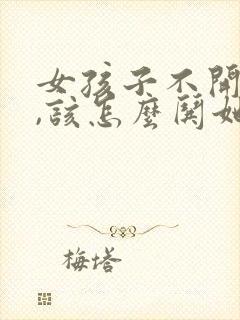 女孩子不開
,該怎麼鬨她
梅塔